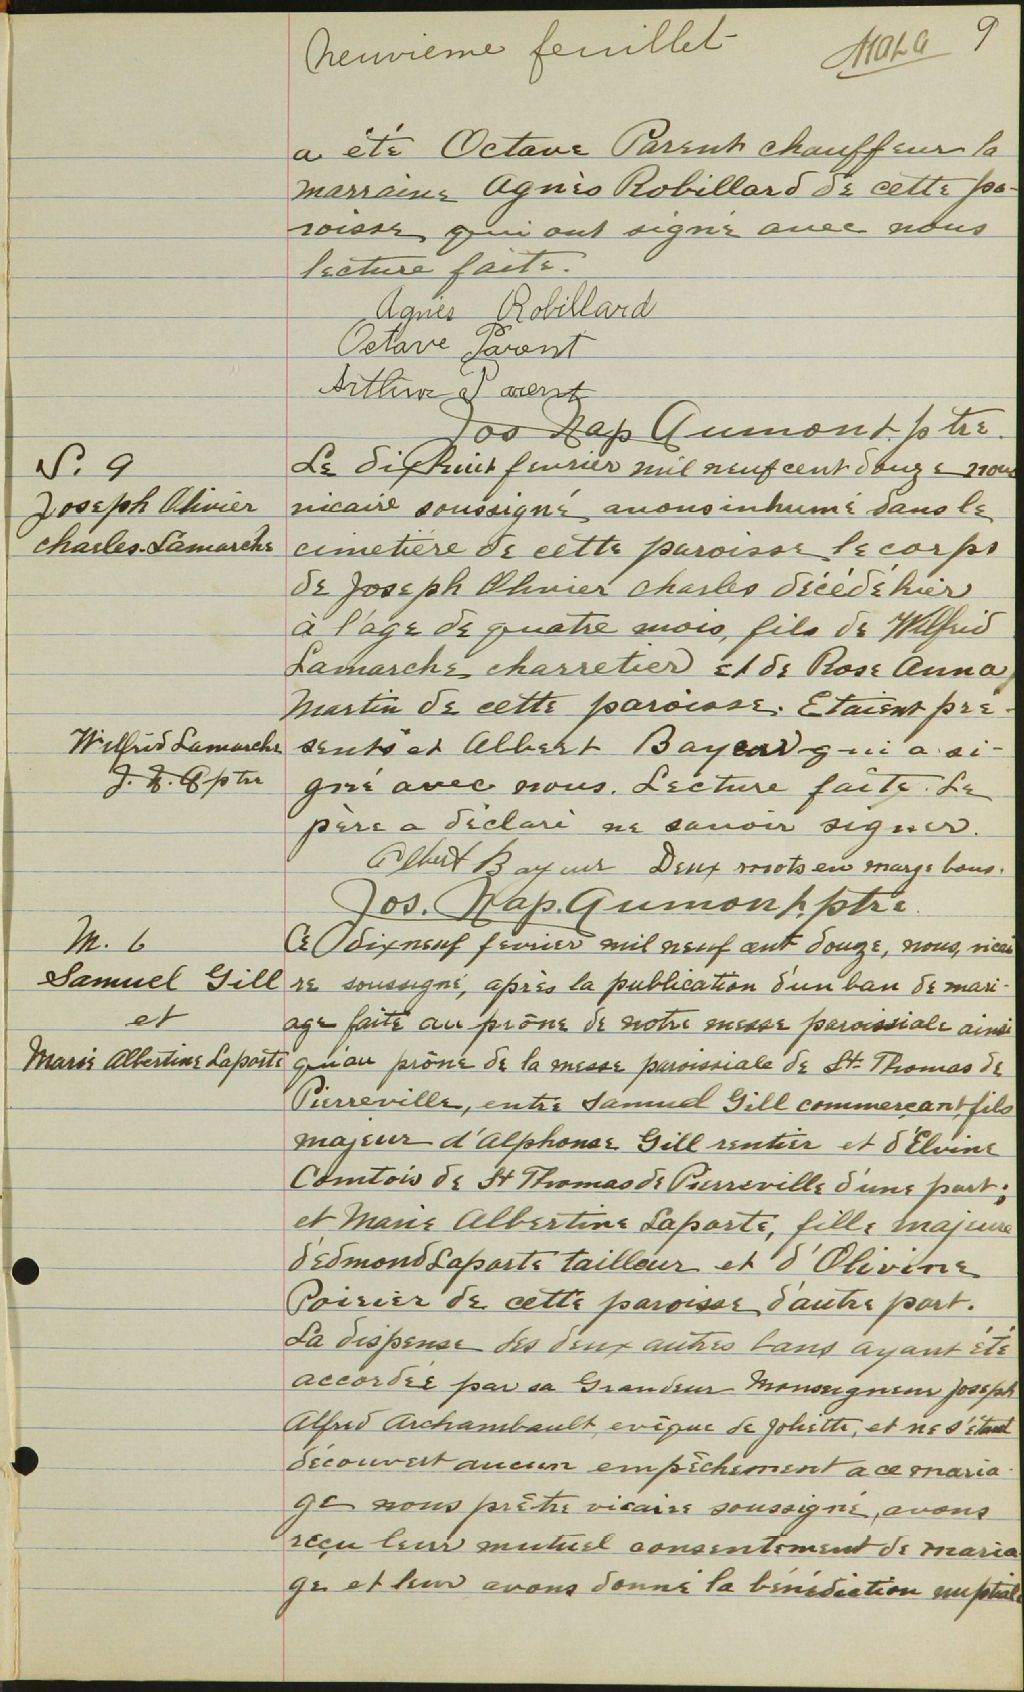 neuvieme feuillet 9
a été Octave Parent chauffeur la
marraine Agnès Robillard de cette pa-
roisse qui ont signé avec nous
lecture faite.
Agnès Robillard
Octave Parent
Arthur Parent
Jos Nap Aumont ptre.
S. 9
Joseph Olivier
Charles Lamarche
Le dix huit fevrier mil neuf cent douze nous
vicaire soussigné avons inhumé dans le
cimetière de cette paroisse le corps
de Joseph Olivier Charles décédé hier
à l'âge de quatre mois, fils de Wilfrid
Lamarche charretier et de Rose Anna
Martin de cette paroisse. Etaient pré-
Wilfrid Lamarche
J. N. A ptre
sents et Albert Bayeur qui a si-
gné avec nous. Lecture faite. Le
père a déclaré ne savoir signer.
Albert Bayeur Deux mots en marge bons.
Jos. Nap. Aumont ptre
M. 6
Samuel Gill
et
Marie Albertine Laporte
Ce dix neuf fevrier mil neuf cent douze, nous, vicai
re soussigné, après la publication d'un ban de mari-
age faite au prône de notre messe paroissiale ainsi
qu'au prône de la messe paroissiale de St Thomas de
Pierreville, entre Samuel Gill commerçant, fils
majeur d'Alphonse Gill rentier et d'Elvine
Comtois de St Thomas de Pierreville d'une part;
et Marie Albertine Laporte, fille majeure
d'edmond Laporte tailleur et d'Olivine
Poirier de cette paroisse d'autre part.
La dispense des deux autres bans ayant été
accordée par sa Grandeur Monseigneur Joseph
Alfred Archambault, evêque de Joliette, et ne s'étant
découvert aucun empêchement a ce maria-
ge nous prêtre vicaire soussigné, avons
reçu leur mutuel consentement de maria-
ge et leur avons donné la bénédiction nuptiale